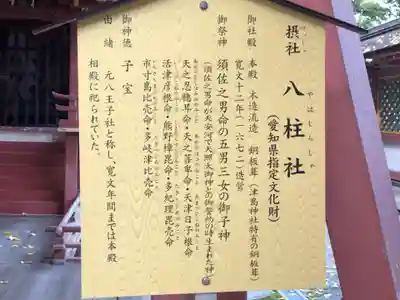 摂社 八柱社
せっしゃ やはしらしゃ
(愛知県指定文化財)
御社殿 本殿 木造流造 銅板葺(津島神社特有の銅板葺)
寛文十二年(一六七二)造営
御祭神 須佐之男命の五男三女の御子神
(須佐之男命が天安河で天照大御神との御誓約の時生まれた神)
天之忍穂昇命・天之菩卑命・天津日子根命
活津彦根命・熊野樟毘命・多紀理毘売命
市寸島比売命・多岐津比売命
御神徳 子宝
由緒 元八王子社と称し、寛文年間までは本殿
相殿に祀られていた。